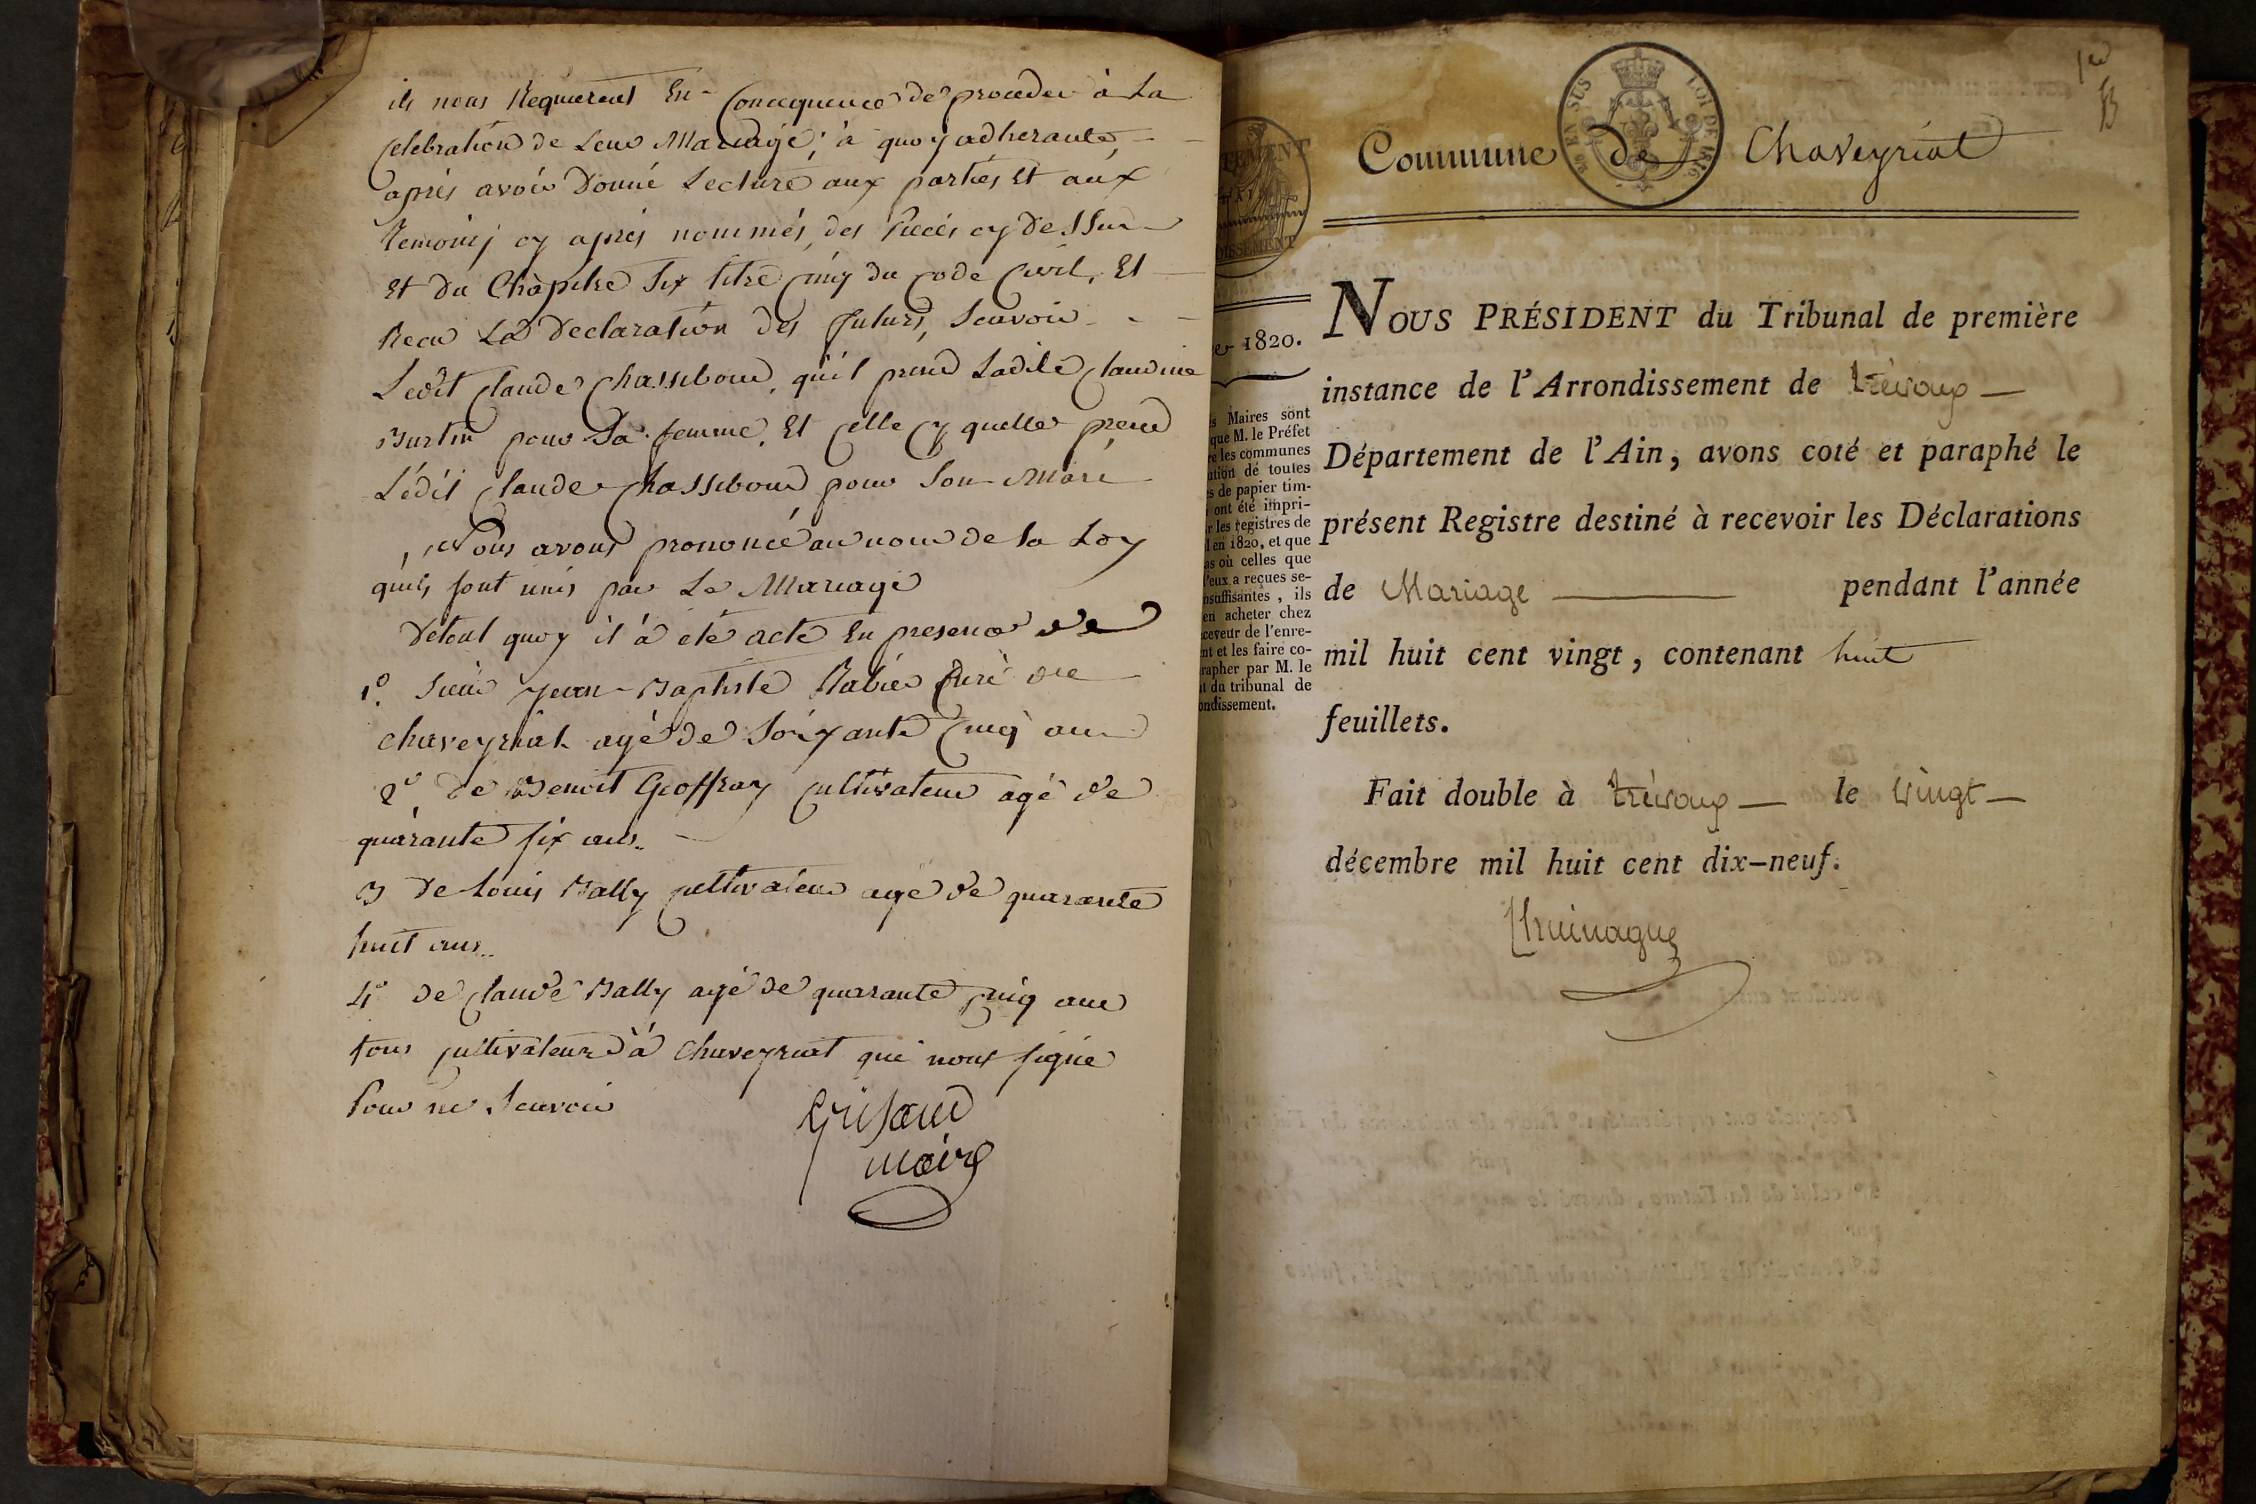 ils nous Requierent En Consequence de proceder à La
Celebration de Leur Mariage; à quoy adherante,
après avoir Donné Lecture aux parties Et aux
temoins cy après nommés, des Pieces cy Dessus
Et Du Chàpitre Six titre Cinq du Code Civil, Et
Recu La Declaration des futurs, Scavoir
Ledit Claude Chassiboud, qu'il prend Ladite Claudine
Burtin pour Sa femme, Et Celle Cy quelle prend
Lédit Claude Chassiboud pour Son Mari
Nous avons prononcé au nom de la Loy
quils sont unis par Le Mariage
Detout quoy il à été acte En presence de
1º. Sieur Jean-Baptiste Rabier Curé de
chaveyriat agé de Soixante Cinq ans
2º. de Benoit Geoffray Cultivateur agé de
quarante six ans..
3 de Louis Bally Cultivateur agé de quarante
huit ans..
4º de Claude Bally agé de quarante Cinq ans
tous Cultivateurs à Chaveyriat qui nont signé
Pour ne Scavoir
maire
TEMENT
DISSEMENT
1820.
s Maires sont
que M. le Préfet
re les communes
ution de toutes
s de papier tim-
ont été impri-
r les registres de
l en 1820, et que
as où celles que
l'eux a reçues se-
nsuffisantes, ils
en acheter chez
ceveur de l'enre-
nt et les faire co-
rapher par M. le
t du tribunal de
ondissement.
1er
Commune de Chaveyriat
EN SUS LOI DE 1816
NOUS PRÉSIDENT du Tribunal de première
instance de l'Arrondissement de trévoux
Département de l'Ain, avons coté et paraphé le
présent Registre destiné à recevoir les Déclarations
de Mariage pendant l'année
mil huit cent vingt, contenant huit
feuillets.
Fait double à trévoux le vingt
décembre mil huit cent dix-neuf.